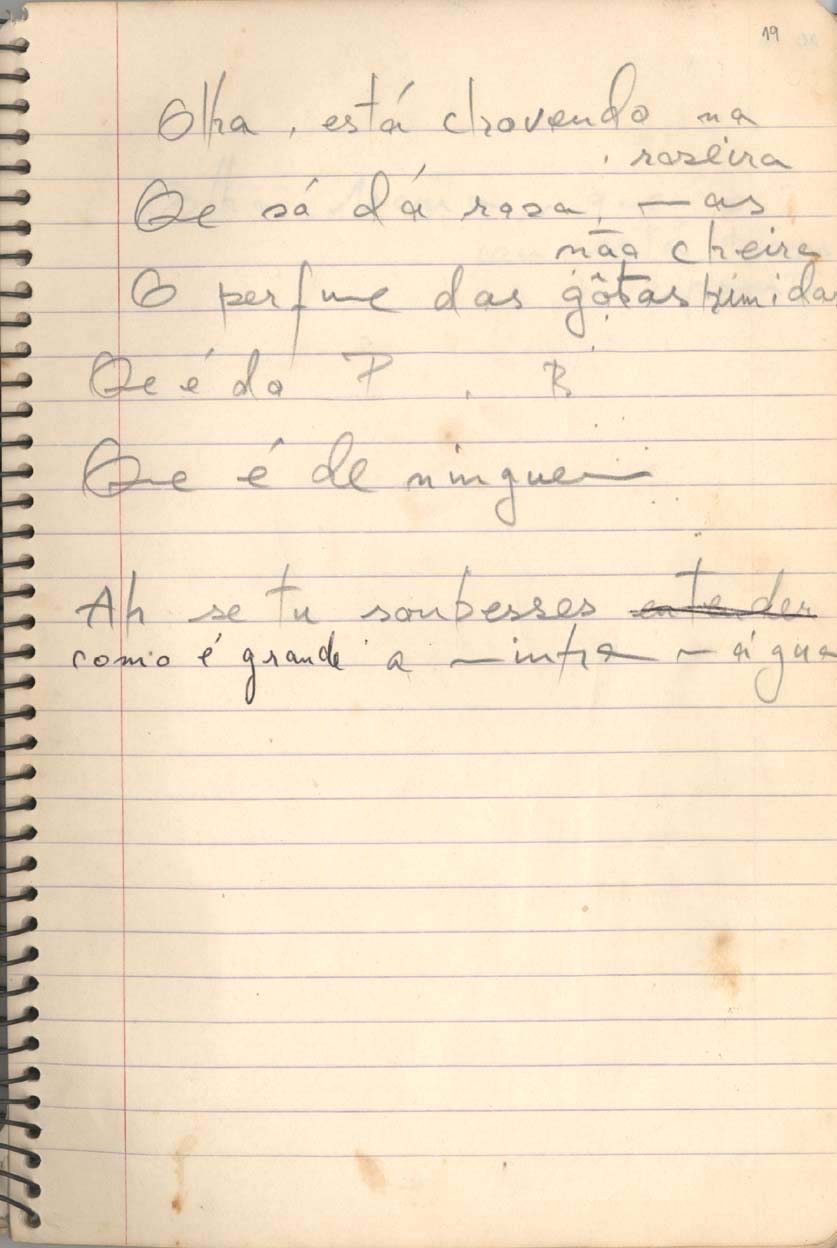 19
Olha, está chovendo na
roseira
Qe só dá rosa, mas
não cheira
O perfume das gôtas úmidas
Qe é do P . B
Que é de ninguem
Ah se tu soubesses entender
como é grande a minha mágua